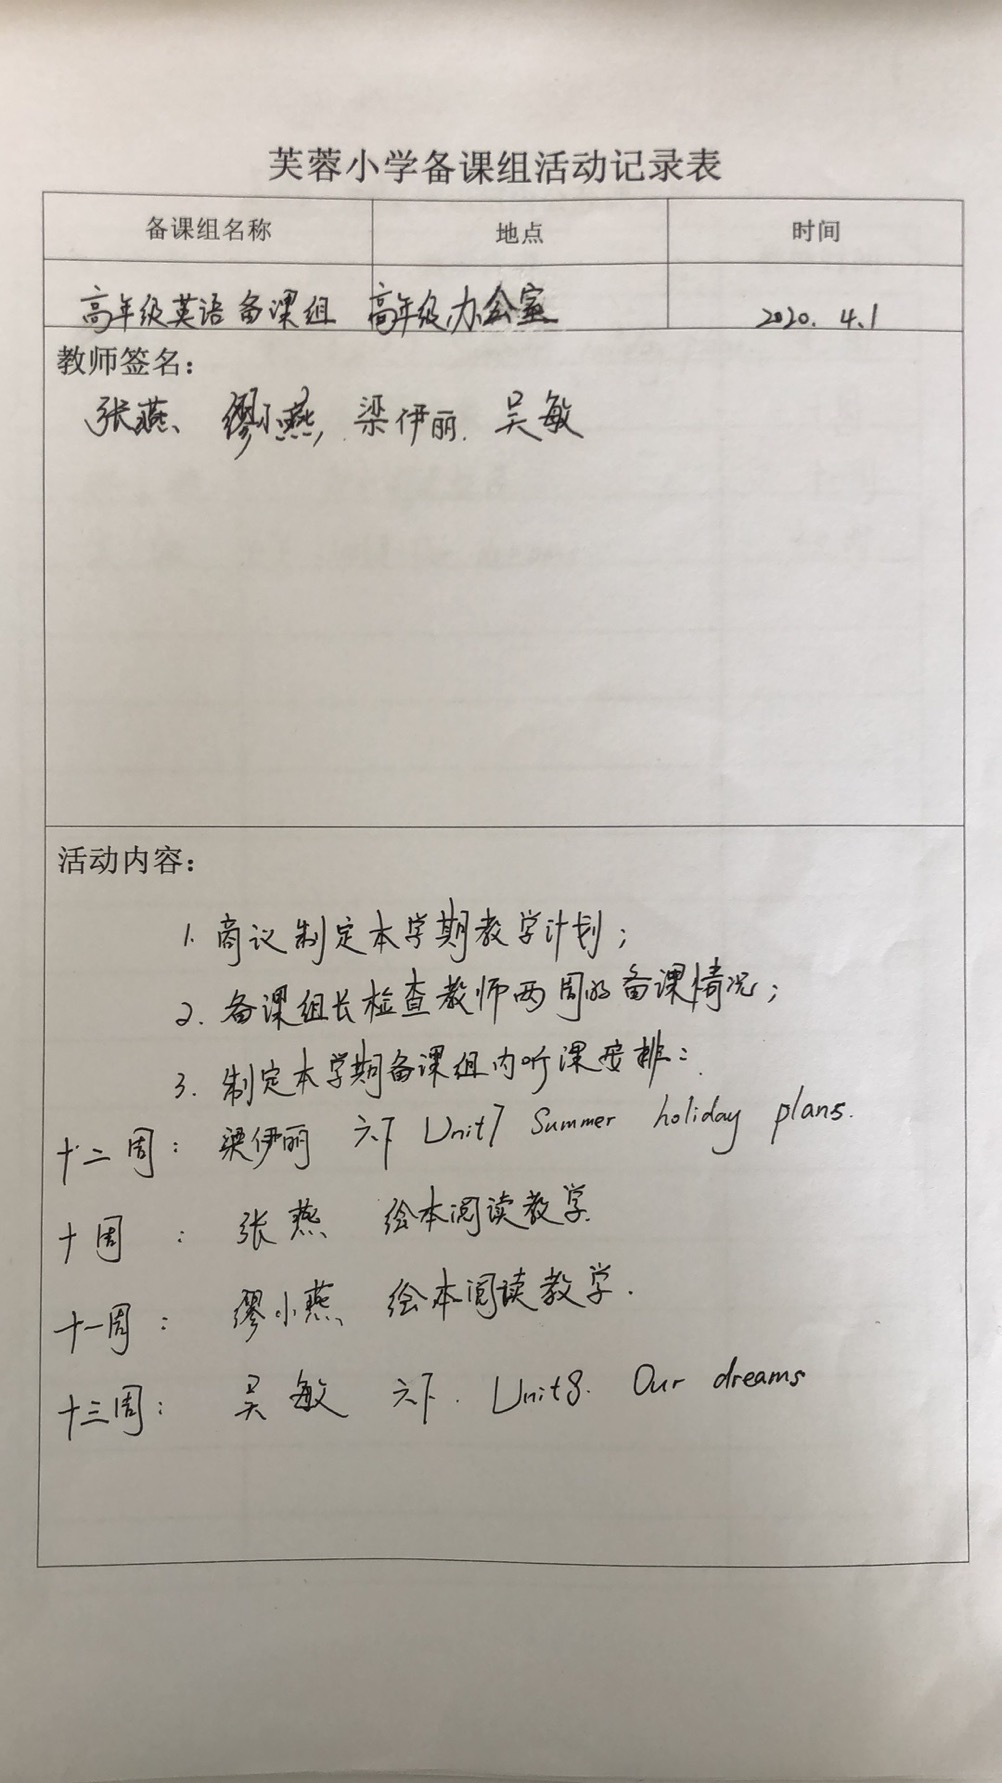 芙蓉小学备课组活动记录表
备课组名称 地点 时间
高年级英语备课组 高年级办公室 2020.4.1
教师签名：
张燕、缪小燕，梁伊丽．吴敏
活动内容：
1. 商议制定本学期教学计划；
2. 备课组长检查教师两周的备课情况；
3. 制定本学期备课组内听课安排：
十二周： 梁伊丽 六下 Unit7 Summer holiday plans.
十周 ： 张燕 绘本阅读教学.
十一周： 缪小燕 绘本阅读教学.
十三周： 吴敏 六下. Unit8. Our dreams